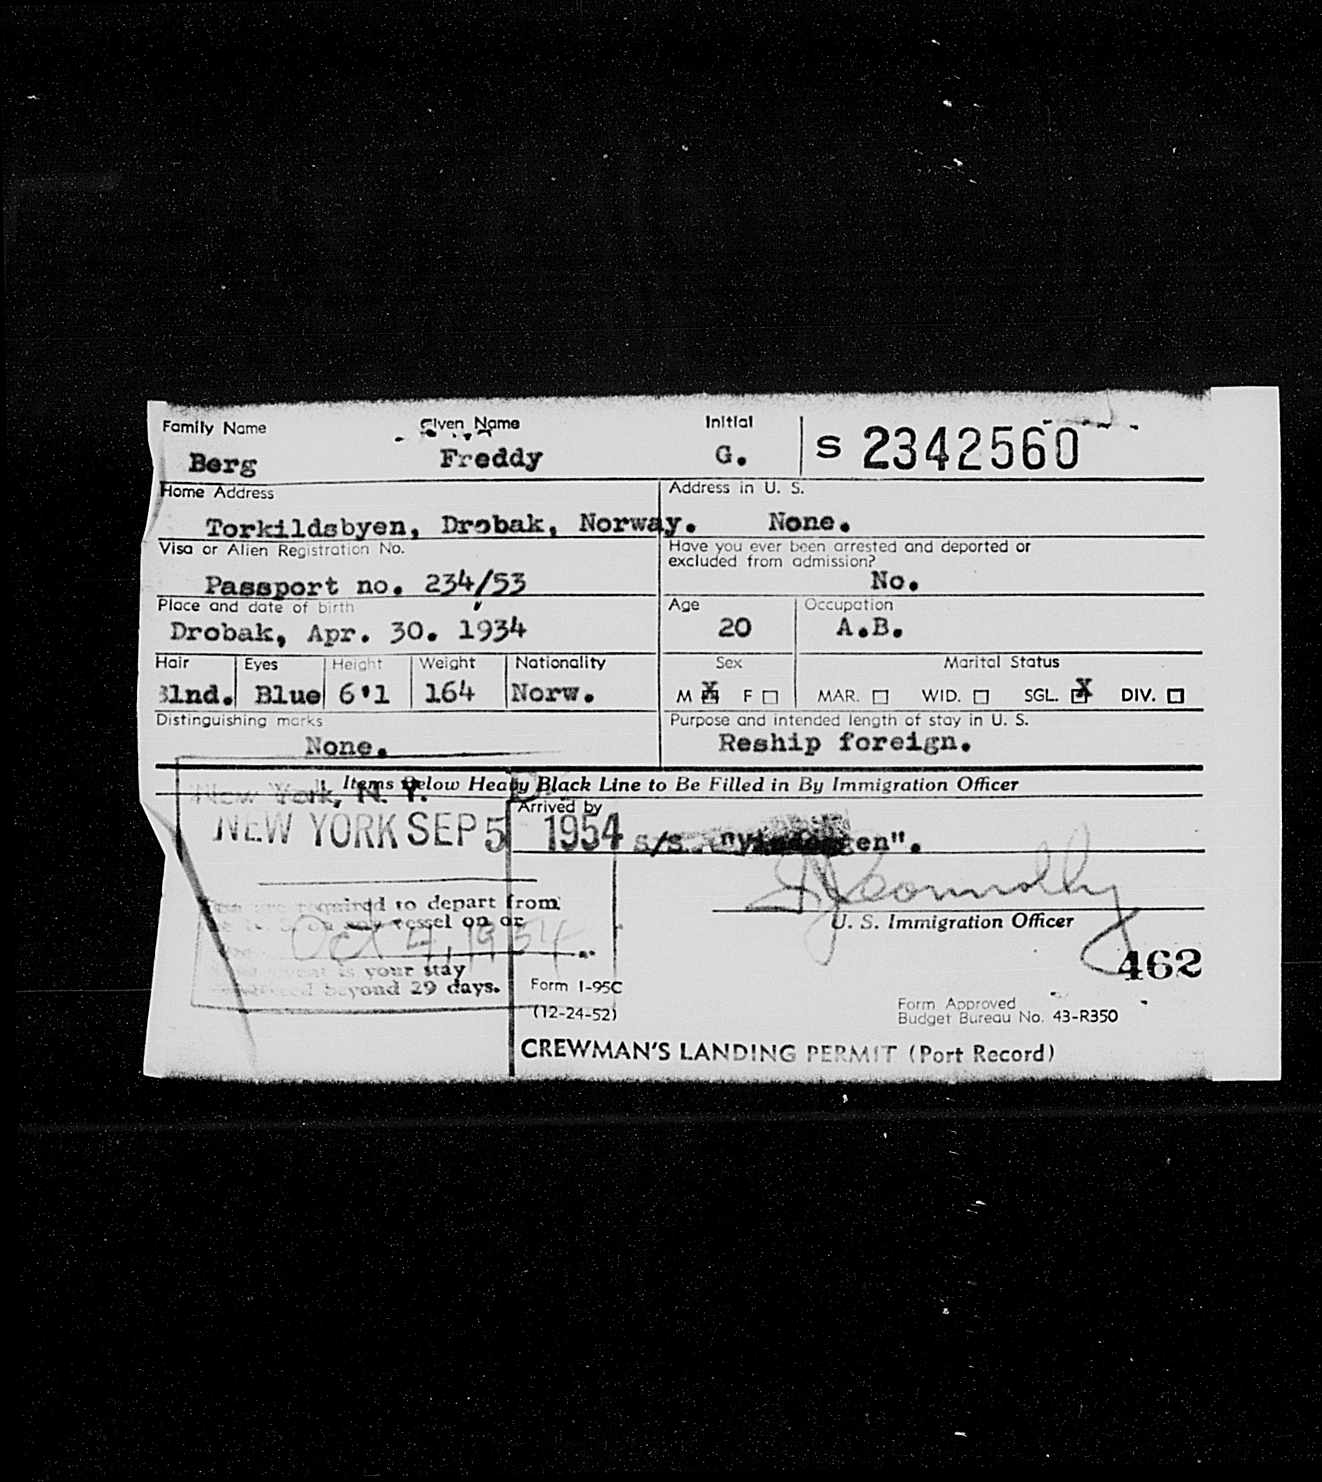 Family Name Given Name Initial
Berg Freddy G. S 2342560
Home Address Address in U. S.
Torkildsbyen, Drobak, Norway. None.
Visa or Alien Registration No. Have you ever been arrested and deported or
excluded from admission?
Passport no. 234/53 No.
Place and date of birth Age Occupation
Drobak, Apr. 30. 1934 20 A.B.
Hair Eyes Height Weight Nationality Sex Marital Status
Blnd. Blue 6'1 164 Norw. M X F MAR. WID. SGL. X DIV.
Distinguishing marks Purpose and intended length of stay in U. S.
None. Reship foreign.
Items Below Heavy Black Line to Be Filled in By Immigration Officer
New York, N. Y.
Arrived by
NEW YORK SEP 5 1954 s/s.
JJ Connolly
required to depart from
vessel on or
U. S. Immigration Officer
Oct 4, 1954
462
is your stay
beyond 29 days.
Form I-95C
(12-24-52)
Form Approved
Budget Bureau No. 43-R350
CREWMAN'S LANDING PERMIT (Port Record)